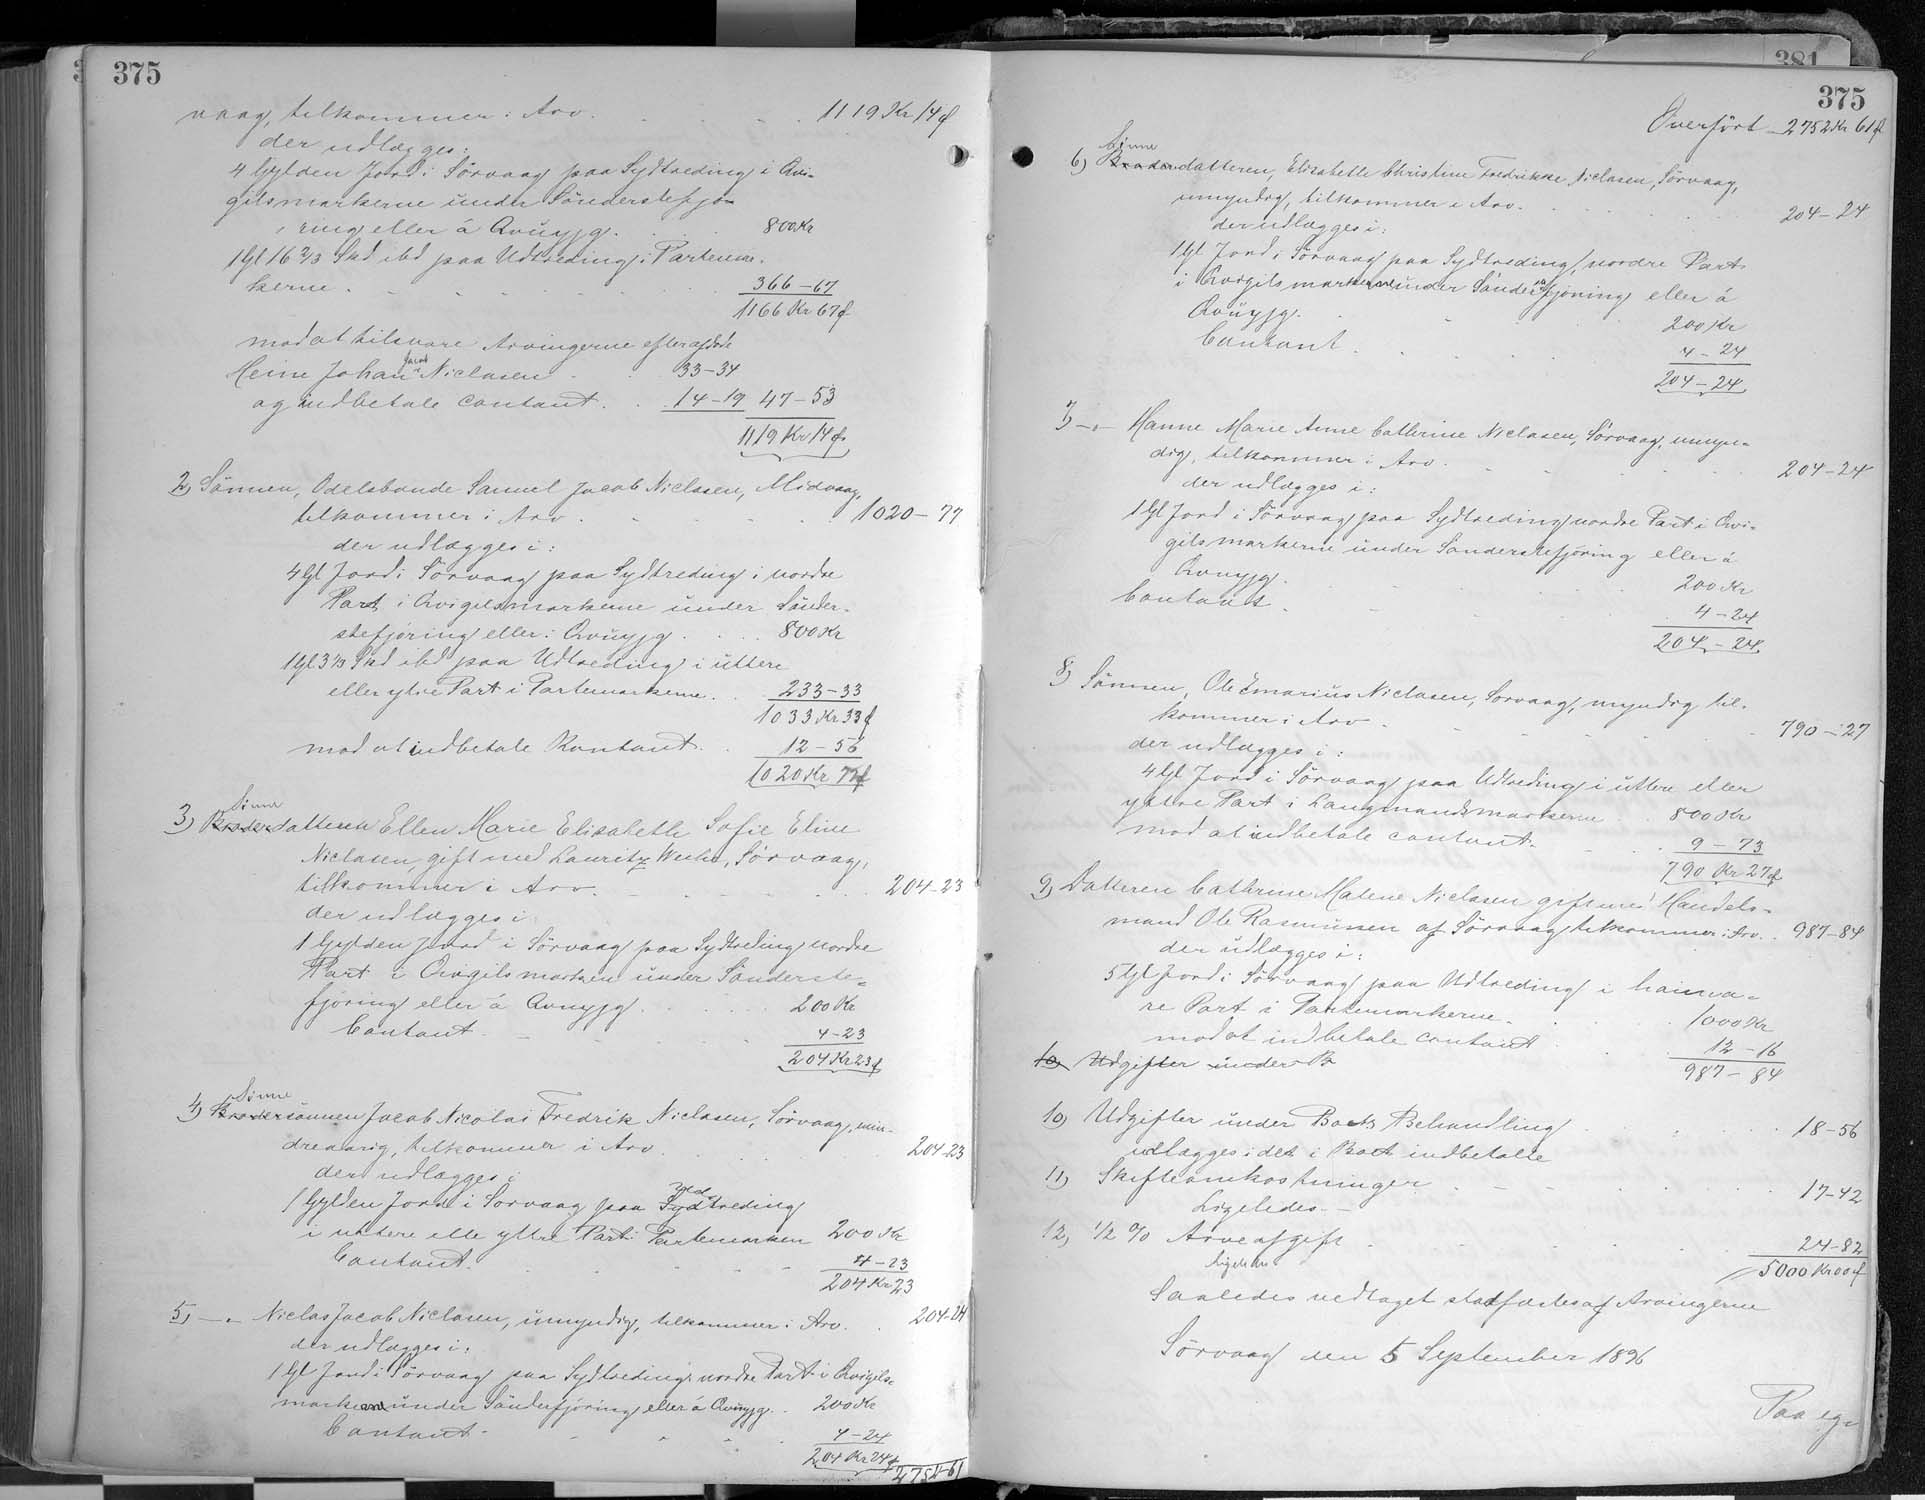 375
vaag, tilkommer i Arv . . . . 1119 Kr 14 ø
der udlægges:
4 Gylden Jord i Sörvaag paa Sydtreding i Qvi-
gilsmarkerne under Sönderstefjö-
ring eller á Qvüyjg. . . 800 Kr
1 Gl 16 2/3 Skd ibd paa Udtreding i Partemar-
kerne . . . . . 366-67
1166 Kr 67 ø
mod at tilsvare Arvingerne efter afdøde
Heine Johan Jacob Niclasen . . 33-34
og indbetale contant. . . 14-19 47-53
1119 Kr 14 ø
2) Sönnen, Odelsbonde Samuel Jacob Niclasen, Midvaag,
tilkommer i Arv . . . . . 1020-77
der udlægges i:
4 Gl Jord i Sörvaag paa Sydtreding i nordre
Part i Qvigilsmarkerne under Sönder-
stefjöring eller i Qvüyjg . . . . 800 Kr
1 Gl 3 1/3 Skd ibd paa Udtreding i üttere
eller ytre Part i Partemarkerne. . 233-33
1033 Kr 33 ø
mod at indbetale Kontant. . 12-56
1020 Kr 77 ø
Sönne
3) Broderdatteren Ellen Marie Elisabeth Sofie Eline
Niclasen, gift med Lauritz, Sörvaag,
tilkommer i Arv. . . . . . 204-23
der udlægges i
1 Gylden Jord i Sörvaag paa Sydtreding nordre
Part i Qvigilsmarken under Sönderste-
fjöring eller á Qvuyjg . . . . . 200 Kr
Contant . . . . . 4-23
204 Kr 23 ø
Sönne
4) Brodersönnen Jacob Nicolai Fredrik Niclasen, Sörvaag, min-
dreaarig, tilkommer i Arv . . . . 204-23
der udlægges i
1 Gylden Jord i Sörvaag paa Sydtreding
i uttere elle yttre Part i Partemarken 200 Kr
Contant. . . . . 4-23
204 Kr 23
5) -"- Niclas Jacob Niclasen, umyndig, tilkommer i Arv. . 204-24
der udlægges i:
1 Gl Jord i Sörvaag paa Sydtreding nordre Part i Qvigils-
markerne under Sönderfjöring eller á Qvüyjg. . 200 Kr
Contant . . . . 4-24
204 Kr 24 ø
2752-61
381
375
Overfört 2752 Kr 61 ø
Sönne
6) Broderdatteren, Elisabeth Christine Fredrikke Niclasen, Sörvaag,
umyndig, tilkommer i Arv. . . . . . 204-24
der udlægges i:
1 Gl Jord i Sörvaag paa Sydtreding, nordre Part
i Qvigilsmarkerne under Sönderstefjöring eller á
Qvüyjg. . . . . 200 Kr
Contant . . . . . 4-24
204-24
7) -"- Hanne Marie Anne Cathrine Niclasen, Sörvaag, umyn-
dig, tilkommer i Arv . . . . . 204-24
der udlægges i:
1 Gl Jord i Sörvaag paa Sydtreding nordre Part i Qvi-
gilsmarkerne under Sönderstefjöring eller á
Qvuyjg . . . . . 200 Kr
Contant . . . . . 4-24
204-24
8) Sönnen, Ole Zmarius Niclasen, Sörvaag, myndig til-
kommer i Arv . . . . . 790-27
der udlægges i:
4 Gl Jord i Sörvaag paa Udtreding i üttere eller
yttre Part i Langmandsmarkerne . . 800 Kr
mod at indbetale contant. . . 9-73
790 Kr 27 ø
9) Datteren Cathrine Malene Niclasen gift med Handels-
mand Ole Rasmussen af Sörvaag tilkommer i Arv. . 987-84
der udlægges i:
5 Gl Jord i Sörvaag paa Udtreding i haima-
re Part i Partemarkerne . . . 1000 Kr
mod at indbetale contant . . 12-16
10) Udgifter under B 987-84
10) Udgifter under Boets Behandling . . . . 18-56
udlægges i det i Boet indbetalte
11) Skifteomkostninger . . . . 17-42
Ligeledes
12) 1/2 % Arveafgift . . . . . 24-82
Ligeledes 5000 Kr 00 ø
Saaledes vedtaget stadfæstes af Arvingerne
Sörvaag den 5 September 1896
Paa eg-